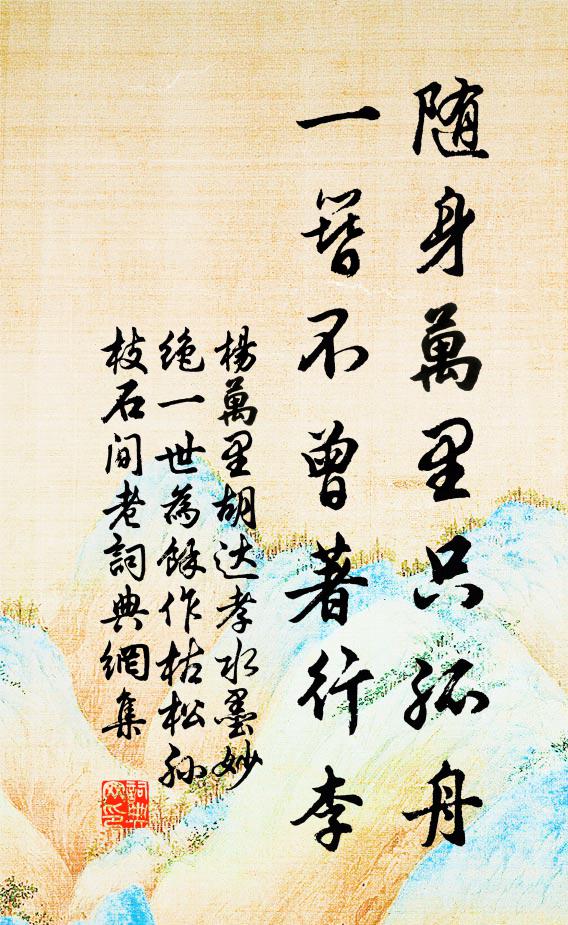 随身萬里只孤舟
一簪不曾著行李
楊萬里胡达孝水墨妙
绝一世為馀作枯松孙
枝石间老詞典網集
詞典網印